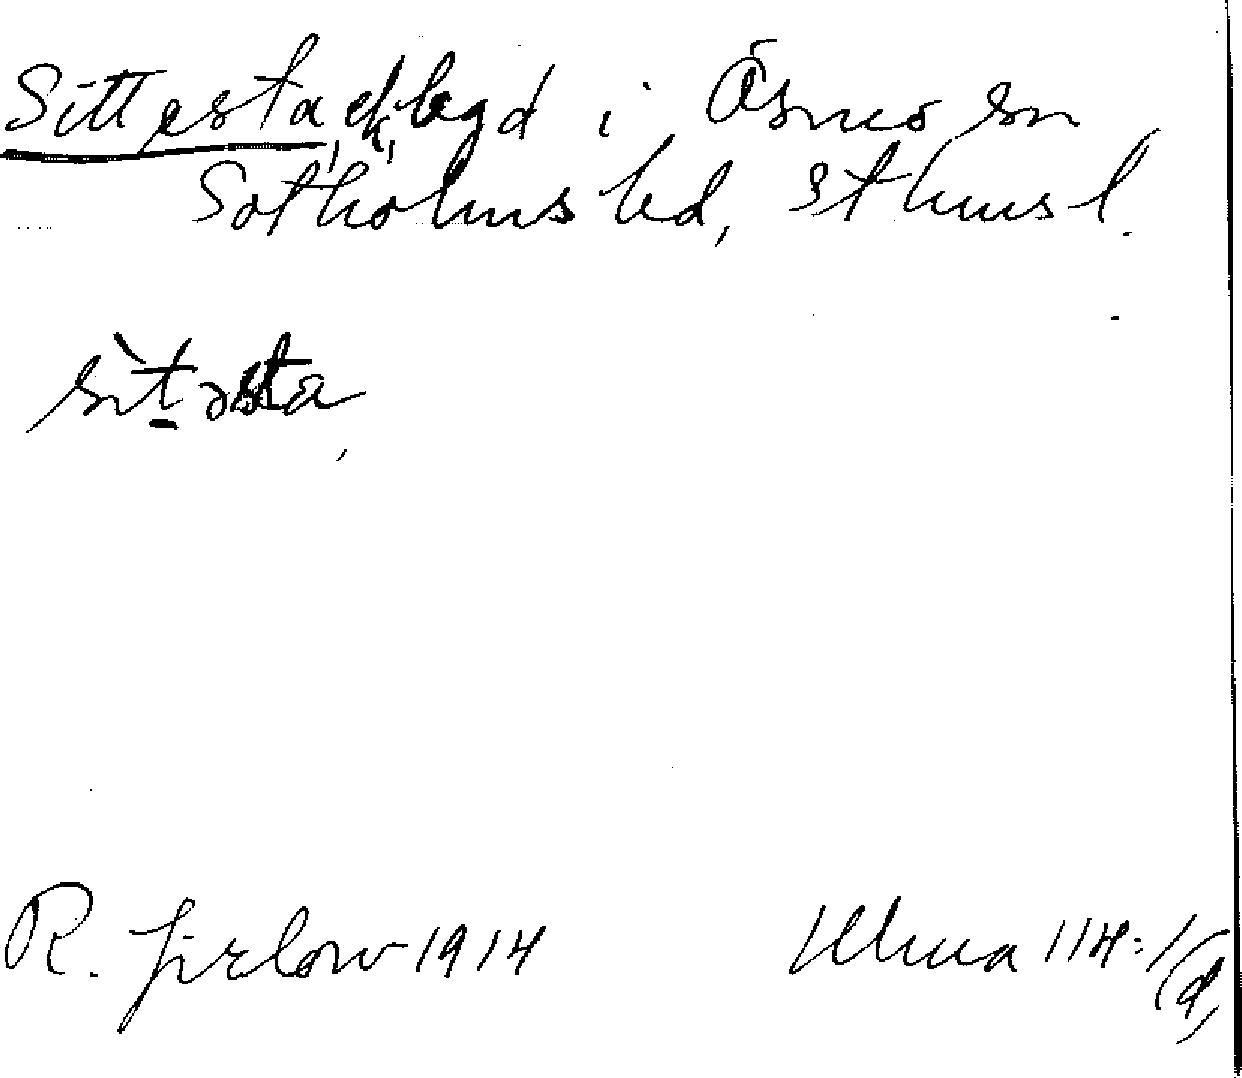 Sittesta, ek, bgd i Ösmo sn
Sotholms hd, Sthms l.
sìtəsta
R. Jirlow 1914
Ulma 114:1 (d)